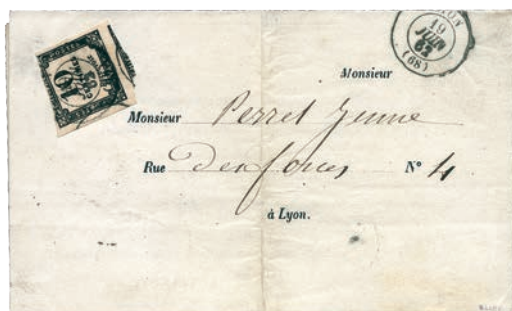 19
JUIN
62
(68)
POSTES
Monsieur
Monsieur Perret Jeune
Rue Desforces N° 4
à Lyon.